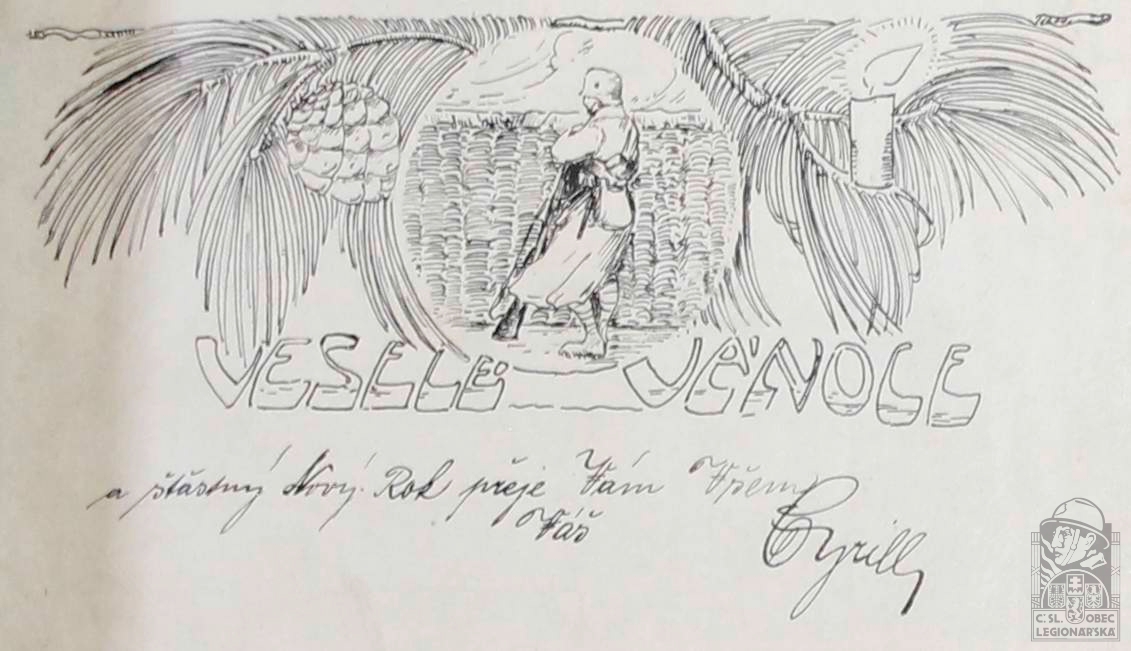 VESELÉ VÁNOCE
a šťastný Nový Rok přeje Vám Všem
Váš
Cyrill
Č.SL. OBEC
LEGIONÁŘSKÁ